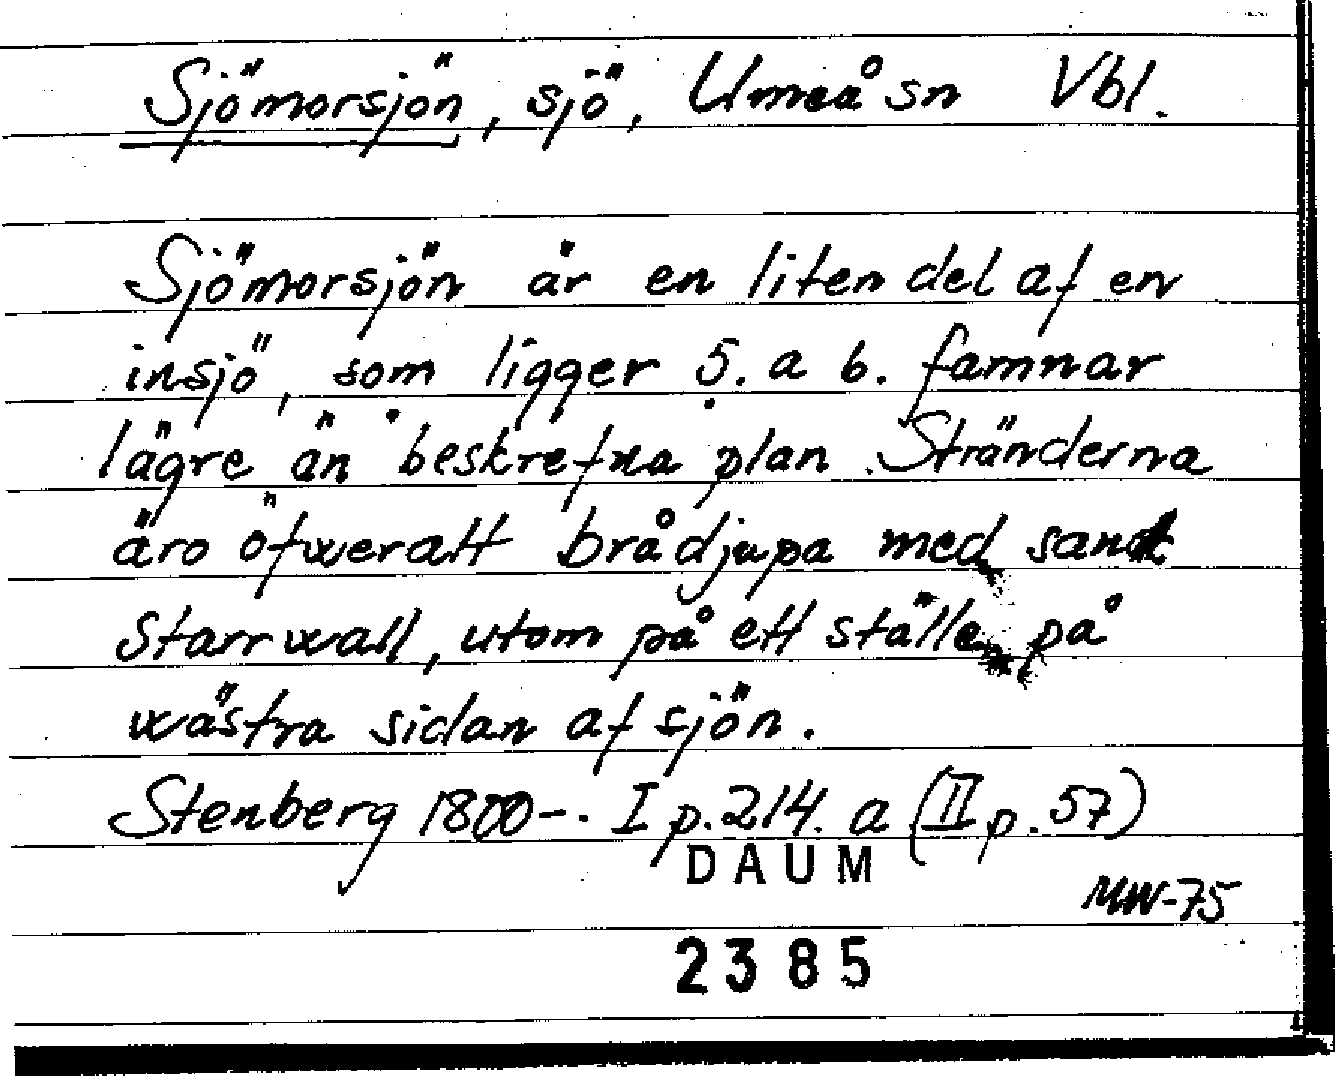 Sjömorsjön, sjö, Umeå sn Vbl.
Sjömorsjön är en liten del af en
insjö, som ligger 5. a 6. famnar
lägre än beskrefna plan. Stränderna
äro öfweralt brådjupa med sandt
Starrwall, utom på ett ställe på
wästra sidan af sjön.
Stenberg 1800-. I p. 214. a (II p. 57)
DAUM
MW-75
2385